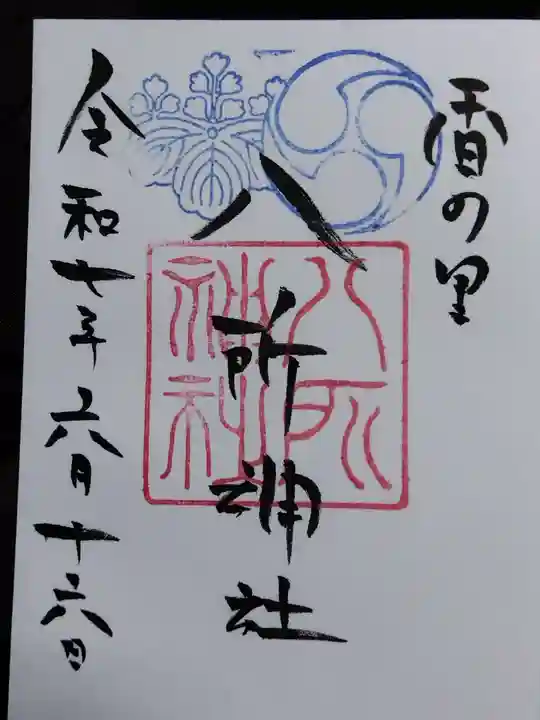 の里
八所神社
八所
神社
令和七年六月十六日